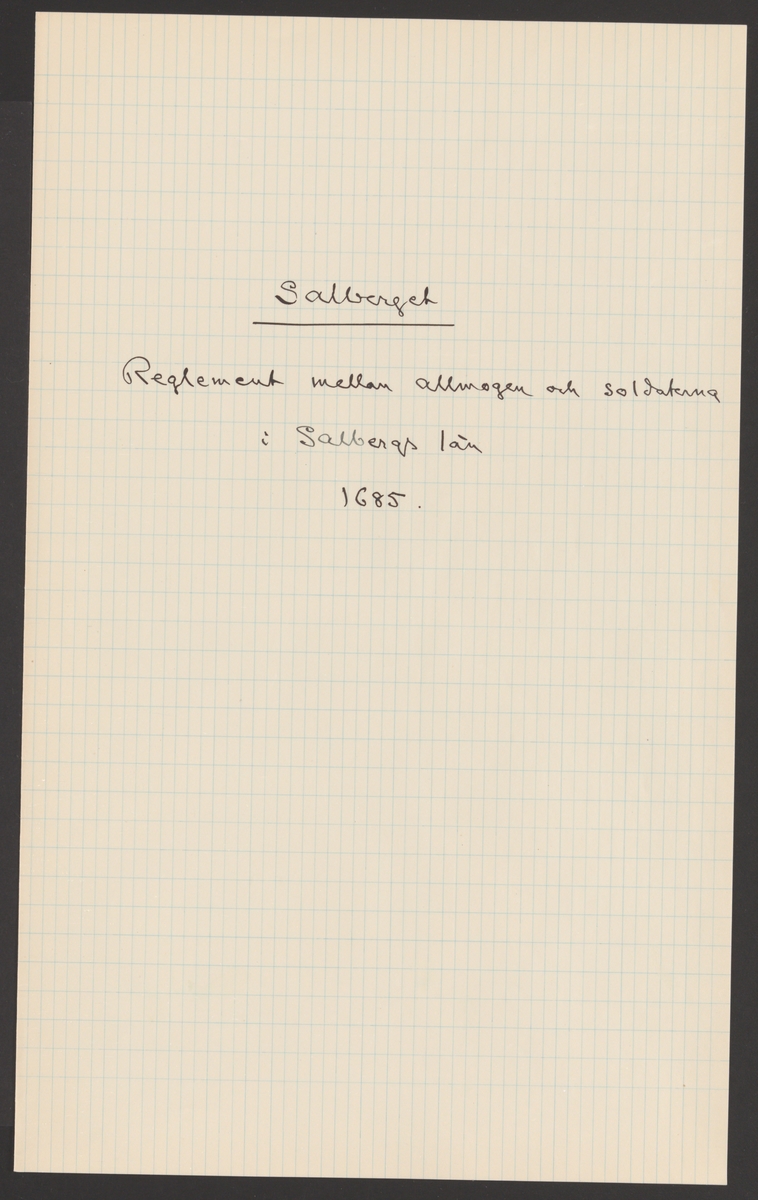 Salberget
Reglement mellan allmogen och soldaterna
i Salbergs län
1685.